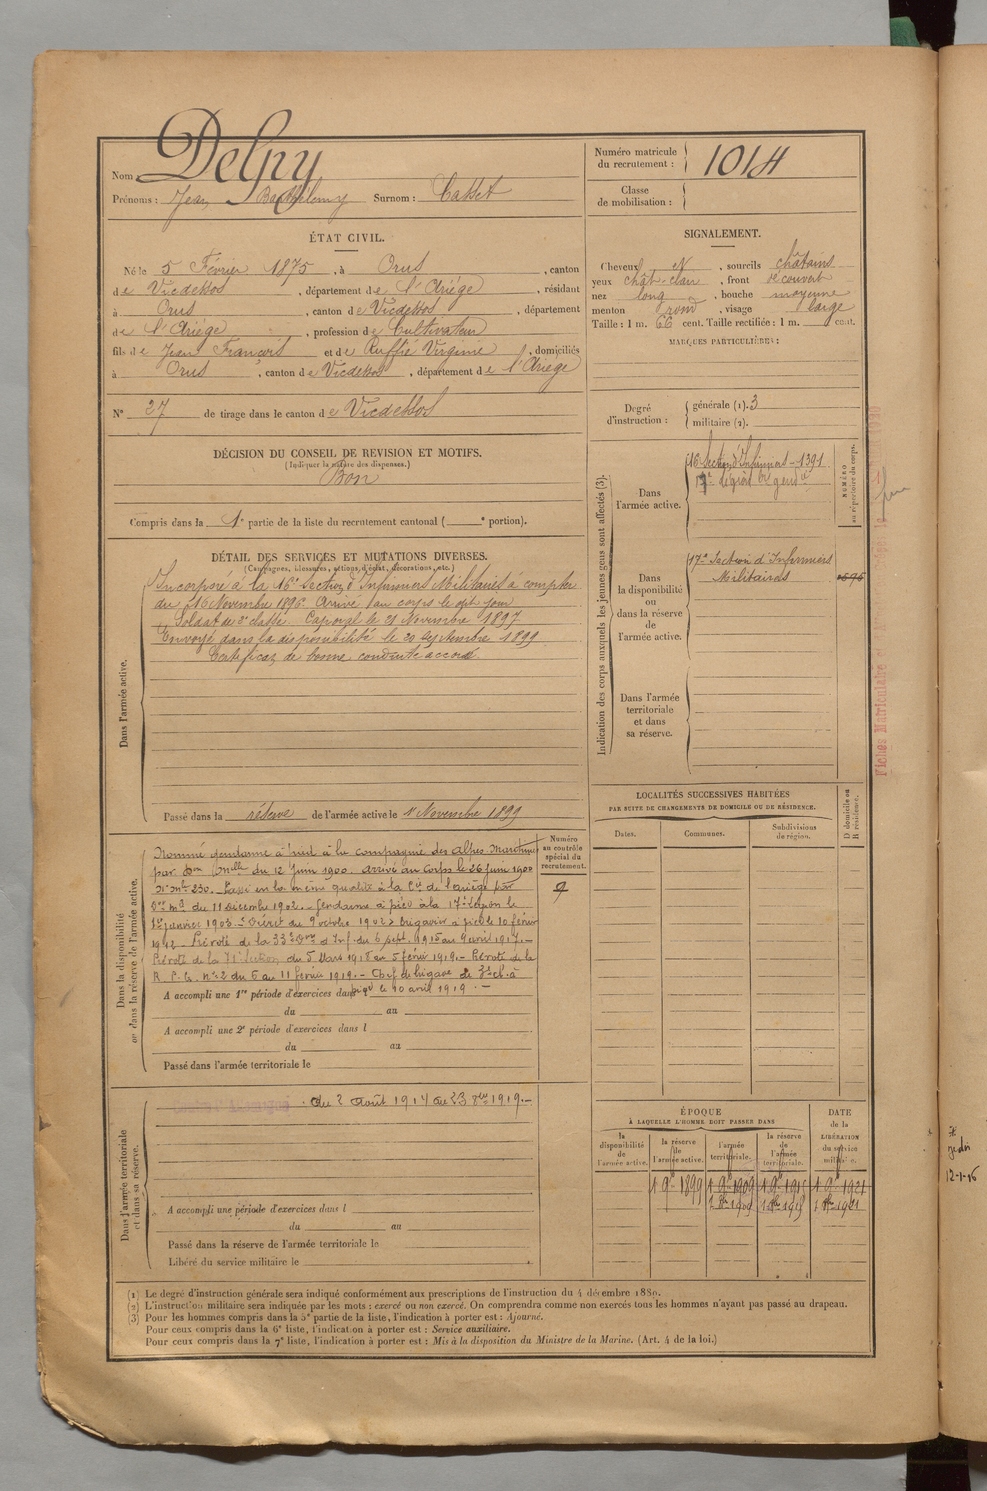 Nom : Delpy
Prénoms : Jean Barthélemy Surnom : Casset
Numéro matricule du recrutement : 1014
Classe de mobilisation :
ÉTAT CIVIL.
Né le 5 Février 1875, à Orus, canton
de Vicdessos, département de l'Ariège, résidant
à Orus, canton de Vicdessos, département
de l'Ariège, profession de Cultivateur
fils de Jean François et de Ruffié Virginie, domiciliés
à Orus, canton de Vicdessos, département de l'Ariège
N° 27 de tirage dans le canton de Vicdessos
SIGNALEMENT.
Cheveux N, sourcils châtains
yeux chât-clair, front découvert
nez long, bouche moyenne
menton rond, visage large
Taille : 1 m. 66 cent. Taille rectifiée : 1 m. cent.
MARQUES PARTICULIÈRES :
Degré d'instruction : générale (1). 3
militaire (2).
DÉCISION DU CONSEIL DE REVISION ET MOTIFS.
(Indiquer la nature des dispenses.)
Bon
Compris dans la 1e partie de la liste du recrutement cantonal ( e portion).
DÉTAIL DES SERVICES ET MUTATIONS DIVERSES.
(Campagnes, blessures, actions d'éclat, décorations, etc.)
Dans l'armée active.
Incorporé à la 16e Section d'Infirmiers Militaires à compter
du 16 Novembre 1896. Arrivé au corps le dit jour
Soldat de 2e classe. Caporal le 21 Novembre 1897
Envoyé dans la disponibilité le 20 Septembre 1899
Certificat de bonne conduite accordé.
Passé dans la réserve de l'armée active le 1er Novembre 1899
Indication des corps auxquels les jeunes gens sont affectés (3).
Dans l'armée active.
16e Section d'Infirmiers - 1391
17e légion de gendie
NUMÉRO au répertoire du corps.
Dans la disponibilité ou dans la réserve de l'armée active.
17e Section d'Infirmiers
Militaires
Dans l'armée territoriale et dans sa réserve.
LOCALITÉS SUCCESSIVES HABITÉES
PAR SUITE DE CHANGEMENTS DE DOMICILE OU DE RÉSIDENCE.
Dates. Communes. Subdivisions de région. D domicile ou R résidence.
Dans la disponibilité ou dans la réserve de l'armée active.
Numéro au contrôle spécial du recrutement.
9
Nommé gendarme à pied à la compagnie des Alpes Maritimes
par Don Mlle du 12 Juin 1900. Arrivé au corps le 26 juin 1900
N° Mle 230. Passé en la même qualité à la Cie de l'Ariège par
Don Mlle du 11 Décembre 1902. Gendarme à pied à la 17e Légion le
1er janvier 1903. Décret du 9 octobre 1902. Brigadier à pied le 10 février
1912. Prévôté de la 33e Don d'Inf. du 6 sept. 1915 au 4 avril 1917.-
Prévôté de la 71e du 5 Mars 1918 au 5 févr 1919.- Prévôté de la
R. n°2 du 6 au 11 février 1919.- Chef de brigade de 3e cl. à
pied le 10 avril 1919.-
A accompli une 1re période d'exercices dans
du au
A accompli une 2e période d'exercices dans l
du au
Passé dans l'armée territoriale le
Dans l'armée territoriale et dans sa réserve.
Contre l'Allemagne du 2 août 1914 au 23 8bre 1919.-
A accompli une période d'exercices dans l
du au
Passé dans la réserve de l'armée territoriale le
Libéré du service militaire le
ÉPOQUE
À LAQUELLE L'HOMME DOIT PASSER DANS
DATE de la LIBÉRATION du service militaire.
la disponibilité de l'armée active. la réserve de l'armée active. l'armée territoriale. la réserve de l'armée territoriale.
1 9e 1899 1 9e 1909 1 9e 1915 1 9e 1921
1 8bre 1909 1 8bre 1915 1 8bre 1921
(1) Le degré d'instruction générale sera indiqué conformément aux prescriptions de l'instruction du 4 décembre 1889.
(2) L'instruction militaire sera indiquée par les mots : exercé ou non exercé. On comprendra comme non exercés tous les hommes n'ayant pas passé au drapeau.
(3) Pour les hommes compris dans la 5e partie de la liste, l'indication à porter est : Ajourné.
Pour ceux compris dans la 6e liste, l'indication à porter est : Service auxiliaire.
Pour ceux compris dans la 7e liste, l'indication à porter est : Mis à la disposition du Ministre de la Marine. (Art. 4 de la loi.)
Fiches Matriculaire
12-1-16